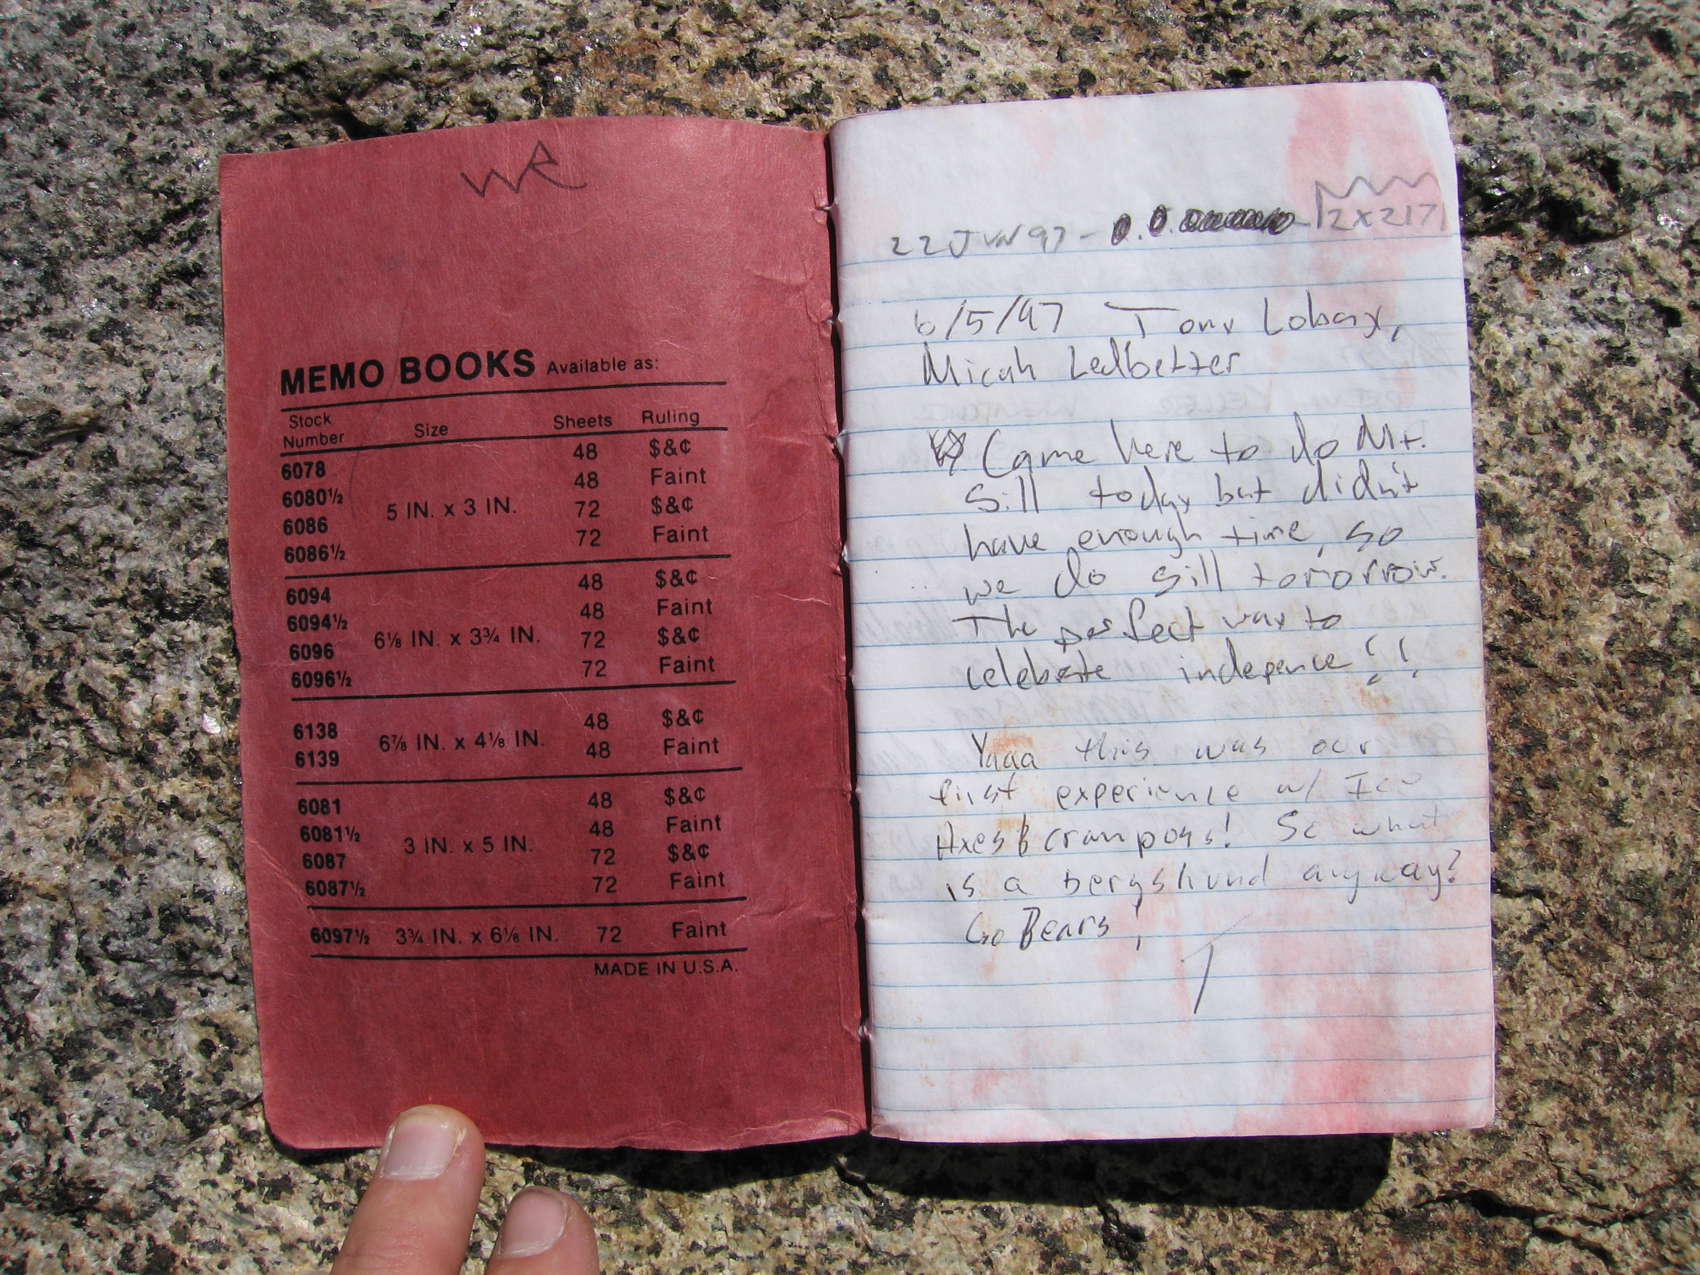 WE
MEMO BOOKS Available as:
Stock Number Size Sheets Ruling
6078 48 $&¢
6080½ 48 Faint
5 IN. x 3 IN.
6086 72 $&¢
6086½ 72 Faint
6094 48 $&¢
6094½ 48 Faint
6⅛ IN. x 3¾ IN.
6096 72 $&¢
6096½ 72 Faint
6138 48 $&¢
6⅞ IN. x 4⅛ IN.
6139 48 Faint
6081 48 $&¢
6081½ 48 Faint
3 IN. x 5 IN.
6087 72 $&¢
6087½ 72 Faint
6097½ 3¾ IN. x 6⅛ IN. 72 Faint
MADE IN U.S.A.
22 JUN 97 - 2x217
6/5/97 Tony
Micah Ledbetter
Came here to do Mt.
Sill today but didn't
have enough time, so
we do Sill tomorrow.
The perfect way to
celebrate indepence!!
Yaaa this was our
first experience w/ Ice
Axes & crampons! So what
is a bergshund anyway?
Go Bears!